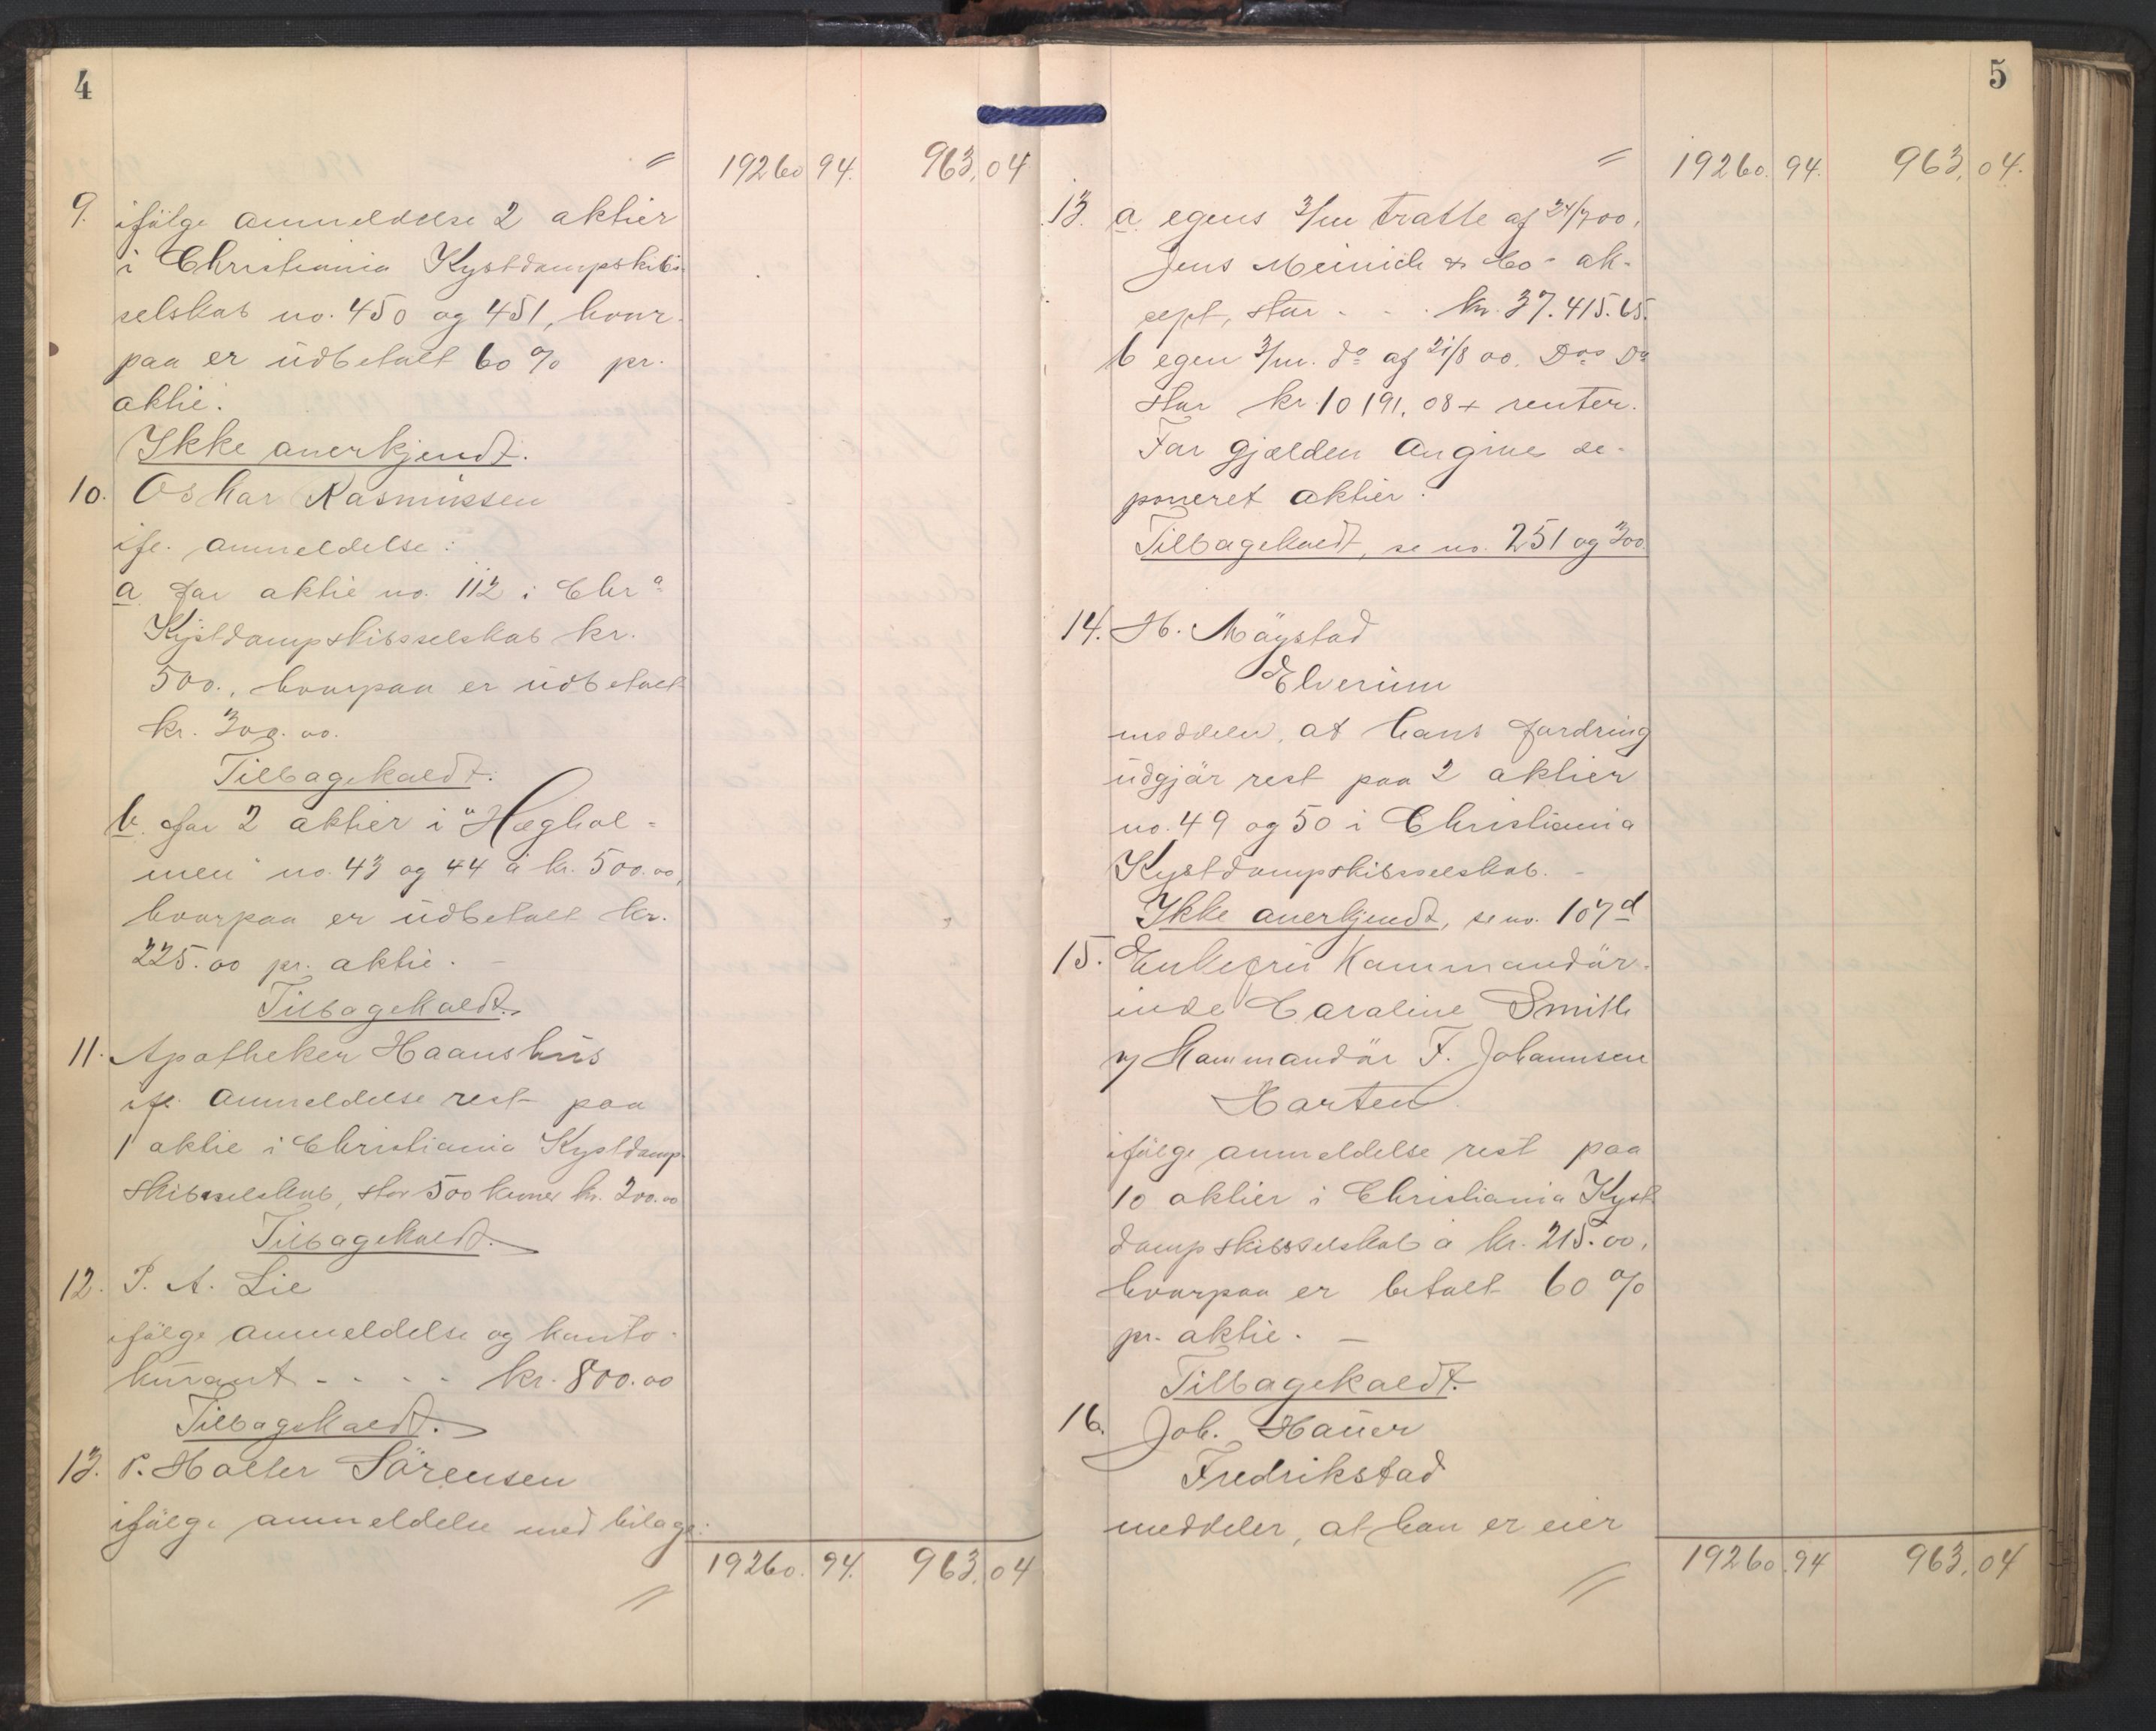 4
〃 19260 94. 963,04
9. ifölge anmeldelse 2 aktier
i Christiania Kystdampskibs-
selskab no. 450 og 451, hvor-
paa er üdbetalt 60% pr.
aktie.
Ikke anerkjendt.
10. Oskar Rasmüssen
ifl. anmeldelse:
a for aktie no. 112 i Chr a
Kystdampskibsselskab kr.
500., hvorpaa er üdbetalt
kr. 300.00.
Tilbagekaldt.
b. for 2 aktier i "Hæghol-
men" no. 43 og 44 à kr. 500.00,
hvorpaa er üdbetalt kr.
225.00 pr. aktie. -
Tilbagekaldt.
11. Apotheker Haanshüs
ifl. anmeldelse rest paa
1 aktie i Christiania Kystdamp-
skibsselskab, stor 500 kroner kr. 200.00
Tilbagekaldt.
12. P. A. Lie
ifölge anmeldelse og konto-
kürant - - - - kr. 800.00
Tilbagekaldt.
13. P. Holter Sörensen
ifölge anmeldelse med bilage:
19260. 94. 963,04
〃
5
〃 19260. 94. 963,04.
13. a. egens 3/m tratte af 24/7 00,
Jens Meinich & Co- ak-
sept, stor - - . kr. 37.415.65.
b egen 3/m. do af 21/8 00. Dos Do
stor kr. 10191.08 + renter.
For gjælden angives de-
poneret aktier.
Tilbagekaldt, se no. 251 og 300.
14. H. Möystad
Elverüm
meddeler, at hans fordring
üdgjör rest paa 2 aktier
no. 49 og 50 i Christiania
Kystdampskibsselskab. -
Ikke anerkjendt, se no. 107 d
15. Enkefrü Kommandör-
inde Caroline Smith
v/ Kommandör F. Johannsen
Horten
ifölge anmeldelse rest paa
10 aktier i Christiania Kyst-
dampskibsselskab à kr. 215.00,
hvorpaa er betalt 60%
pr. aktie. -
Tilbagekaldt.
16. Joh. Haüer
Fredrikstad
meddeler, at han er eier
19260.94 963,04
〃